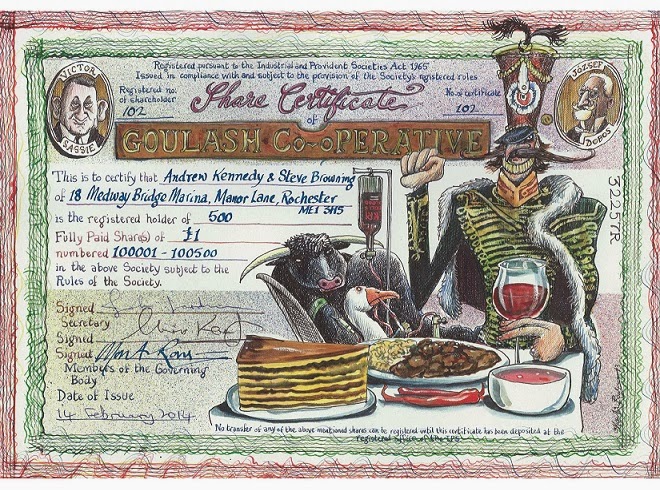 Registered pursuant to the Industrial and Provident Societies Act 1965
Issued in compliance with and subject to the provision of the Society's registered rules
VICTOR
SASSIE
Registered no. of shareholder
102
Share Certificate
of
No. of certificate
102
JOZSEF
GOULASH CO-OPERATIVE
This is to certify that Andrew Kennedy & Steve Browning
of 18 Medway Bridge Marina, Manor Lane, Rochester
ME1 3HS
is the registered holder of 500
Fully Paid Share(s) of £1
numbered 100001 - 100500
in the above Society subject to the
Rules of the Society.
32257R
Signed
Secretary
Signed
Signed
Members of the Governing
Body
Date of Issue
14 February 2014
No transfer of any of the above mentioned shares can be registered until this certificate has been deposited at the
registered office of the